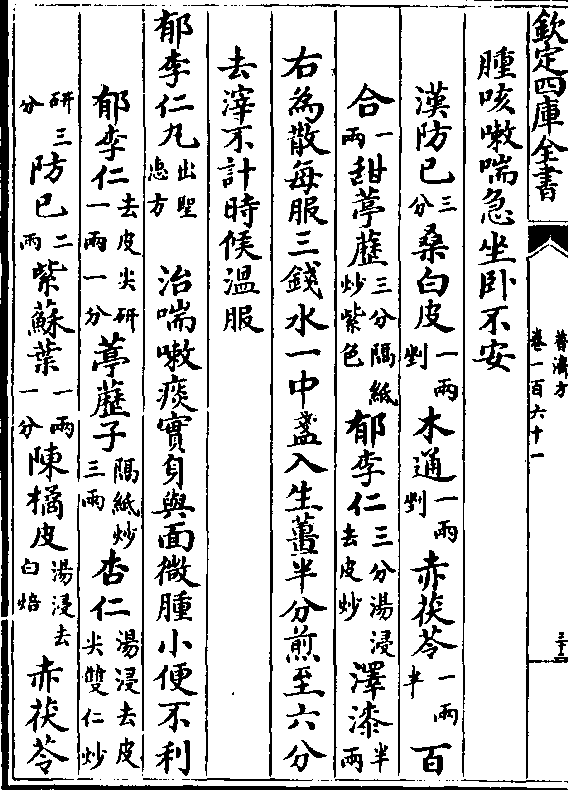 欽定四庫全書
普濟方
卷一百六十一
三十三
腫咳嗽喘急坐卧不安
漢防已三分桑白皮一兩剉木通一兩剉赤茯苓一兩半百
合一兩甜葶藶三分隔紙炒紫色郁李仁三分湯浸去皮炒澤漆半兩
右為散每服三錢水一中盞入生薑半分煎至六分
去滓不計時候溫服
郁李仁丸出聖惠方 治喘嗽痰實身與面微腫小便不利
郁李仁去皮尖研一兩一分葶藶子隔紙炒三兩杏仁湯浸去皮尖雙仁炒
研三分防已二兩紫蘇葉一兩一分陳橘皮湯浸去白焙赤茯苓